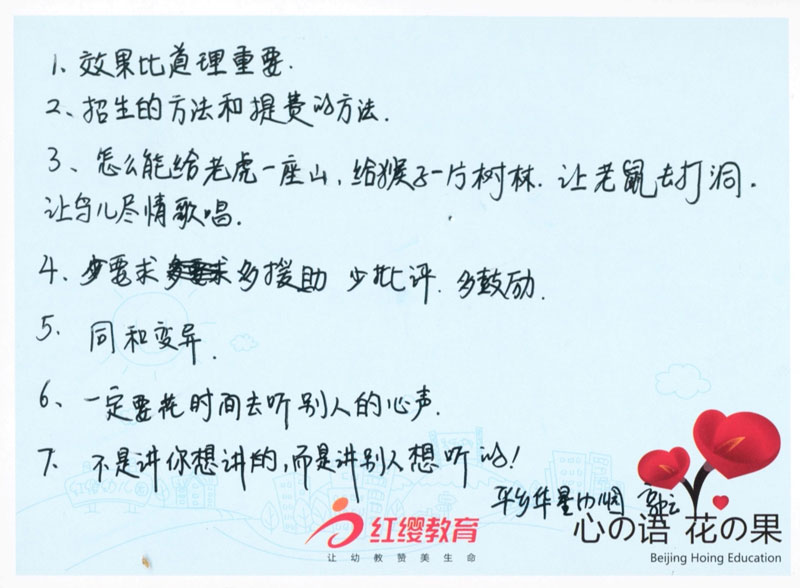 1、效果比道理重要.
2、招生的方法和提费的方法.
3、怎么能给老虎一座山,给猴子一片树林.让老鼠去打洞.
让鸟儿尽情歌唱.
4、少要求 多援助 少批评.多鼓励.
5、同和变异.
6、一定要花时间去听别人的心声.
7、不是讲你想讲的,而是讲别人想听的!
平乡华星幼儿园
红缨教育
让幼教赞美生命
心の语 花の果
Beijing Hoing Education